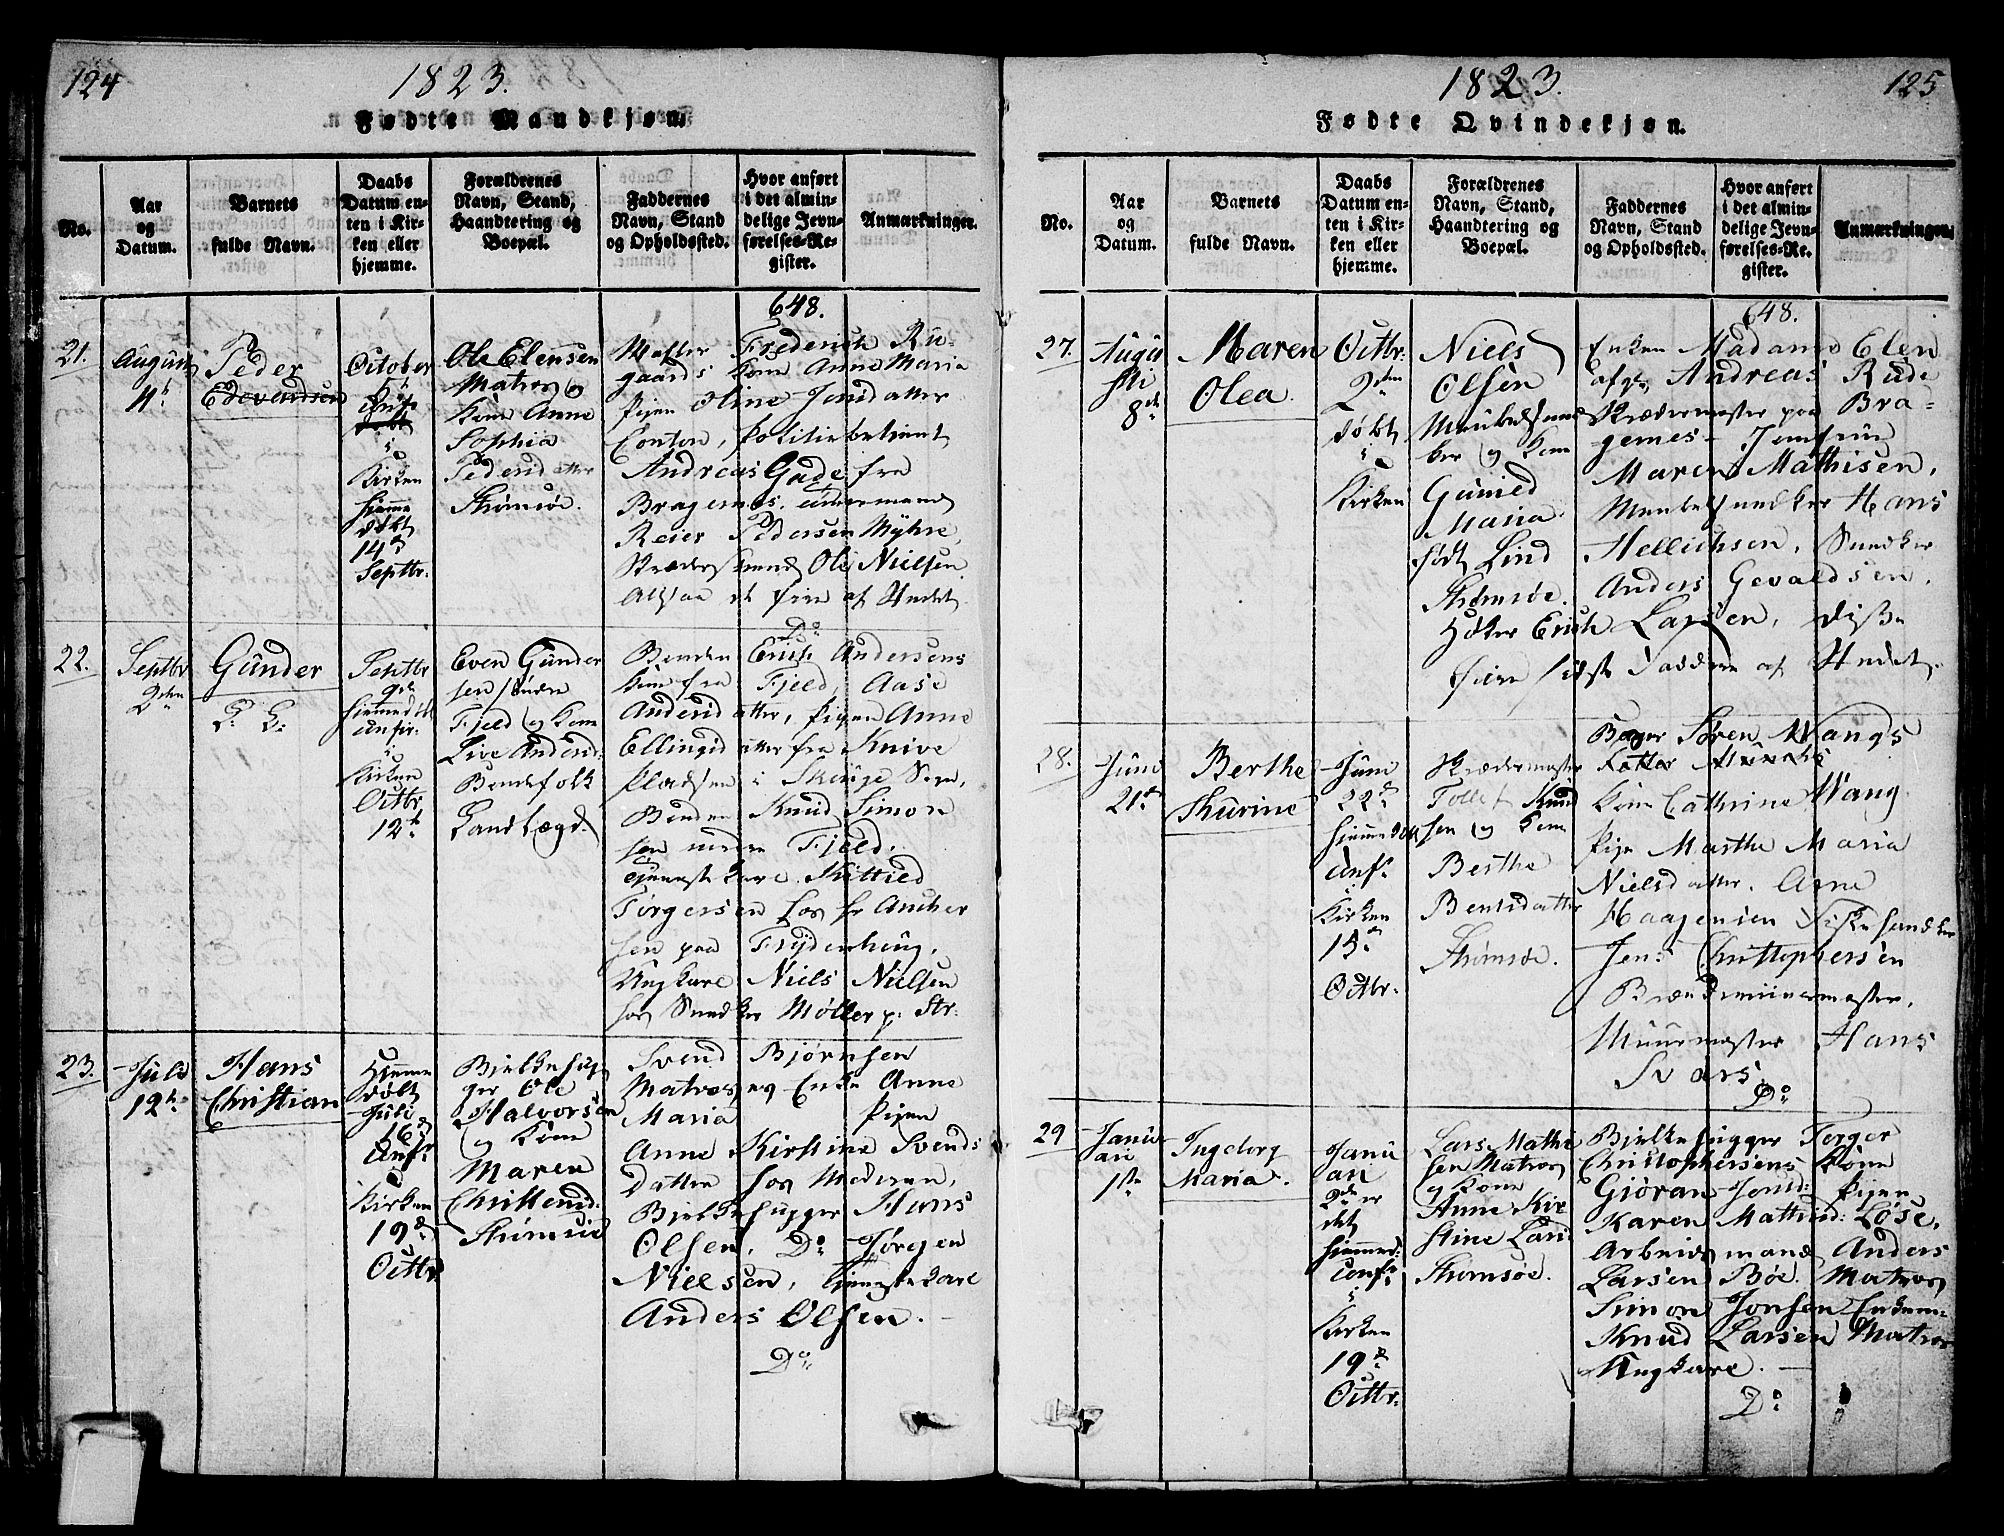 124
1823.
Fødte Mandkjøn.
No.
Aar
og
Datum.
Barnets
fulde Navn.
Daabs
Datum en-
ten i Kir-
ken eller
hjemme.
Forældrenes
Navn, Stand,
Haandtering og
Boepæl.
Faddernes
Navn, Stand
og Opholdssted.
Hvor anført
i det almin-
delige Jevn-
førelses-Re-
gister.
Anmærkninger.
21.
August
4de
Peder
Edevardsen
October
5t
Conf.
i
Kirken
hjemme
døbt
14d
Septbr.
Ole Elensen
Matros og
Kone Anne
Sophia
Pedersdatter
Strømsøe.
648.
Frederich Ru-
gaards Kone Anne Maria
Pigen Oline Jensdatter
Conton, Politiebetjent
Andreas Gade fra
Bragernes,
Reier Pedersen Myhre,
Ole Nielsen
af Stedet.
22.
Septbr
2den
Gunder
Septbr
9de
i
Kirken
Octbr.
12te
Even Gunder
sen søndre
Fjeld og Kone
Live Andersd:
Bondefolk
Landlægd.
Do
Bonden Erich Andersens
Kone fra Fjeld, Aase
Andersdatter, Pigen Anne
Ellingsdatter fra Knive
Pladsen i Skouge Sogn,
Bonden Knud Simon
sen nedre Fjeld.
Tjenestekarl Kittild
Torgersen hos hr Ancher
sen paa Frydenhaug,
Ungkarl Niels Nielsen
hos Snedker Møller p: Str:
23.
Juli
12te
Hans
Christian
Hjemme
døbt
Juli
16d
Conf.
i
Kirken
19d
Octbr
Bjelkehug
ger Ole
Halvorsen
og Kone
Maren
Christensd:
Strømsøe
Svend Bjørnsen
Matros, og Enke Anne
Maria Pigen
Anne Kirstine Svends
datter hos Moderen,
Bjelkehugger Hans
Olsen, Do Jørgen
Nielsen, Tjenestekarl
Anders Olsen.
Do
1823.
125
Fødte Qvindekjøn.
No.
Aar
og
Datum.
Barnets
fulde Navn.
Daabs
Datum en-
ten i Kir-
ken eller
hjemme.
Forældrenes
Navn, Stand,
Haandtering og
Boepæl.
Faddernes
Navn, Stand
og Opholdssted.
Hvor anført
i det almin-
delige Jevn-
førelses-Re-
gister.
Anmærkninger.
27.
Augu
sti
8de
Maren
Olea.
Octbr.
2den
døbt
i
Kirken
Niels
Olsen
Meubelsned
ker og Kone
Gunild
Maria
født Lind
Strømsøe.
648.
Enken Madame Elen
afgs Andreas Rude
Skrædermester paa Bra-
gernes- Jomfru
Maren Mathisen,
Meubelsnedker Hans
Hellichsen, Snedker
Anders Gevaldsen,
Høker Erich Larsen, disse
fire sidste Faddere af Stedet.
28.
Juni
21de
Berthe
Thurine
Juni
22d
hjemmedøbt
Conf.
i
Kirken
15d
Octbr.
Skrædermester
Tollef Knud
sen og Kone
Berthe
Bentsdatter
Strømsøe.
Borger Søren Wangs
Kone Cathrine Wang.
Pige Marthe Maria
Nielsdatter. Anne
Haagensen
Jens Christophersen
Muurmester Hans
Svars.
Do
29
Janu
ari
1ste
Ingeborg
Maria.
Janu
ari
2den er
det
hjemmed:
Conf.
i
Kirken
19d
Octbr.
Lars Mathi
sen Matros
og Kone
Anne Kir
stine Larsd
Strømsøe.
Bjelkehugger Torger
Christophersens Kone
Gjøran Jensd: Pigen
Karen Mathisd: Løse,
Arbeidsmand Anders
Larsen Bøe. Matros
Simon Jonsen Enkem:
Knud Larsen Matros
Ungkarl.
Do